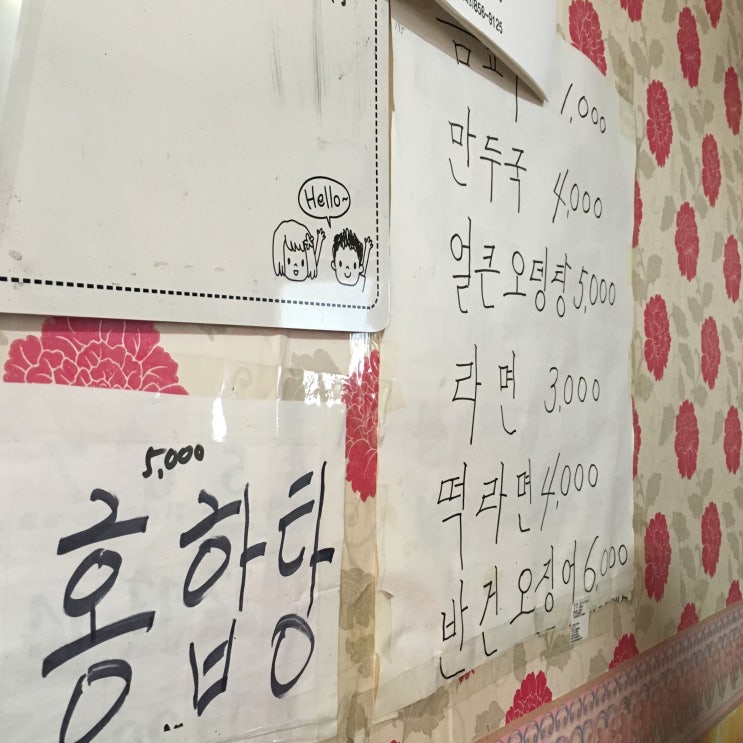 856-9125
1,000
만두국 4,000
얼큰오뎅탕 5,000
라면 3,000
떡라면 4,000
반건오징어 6,000
Hello~
5,000
홍합탕